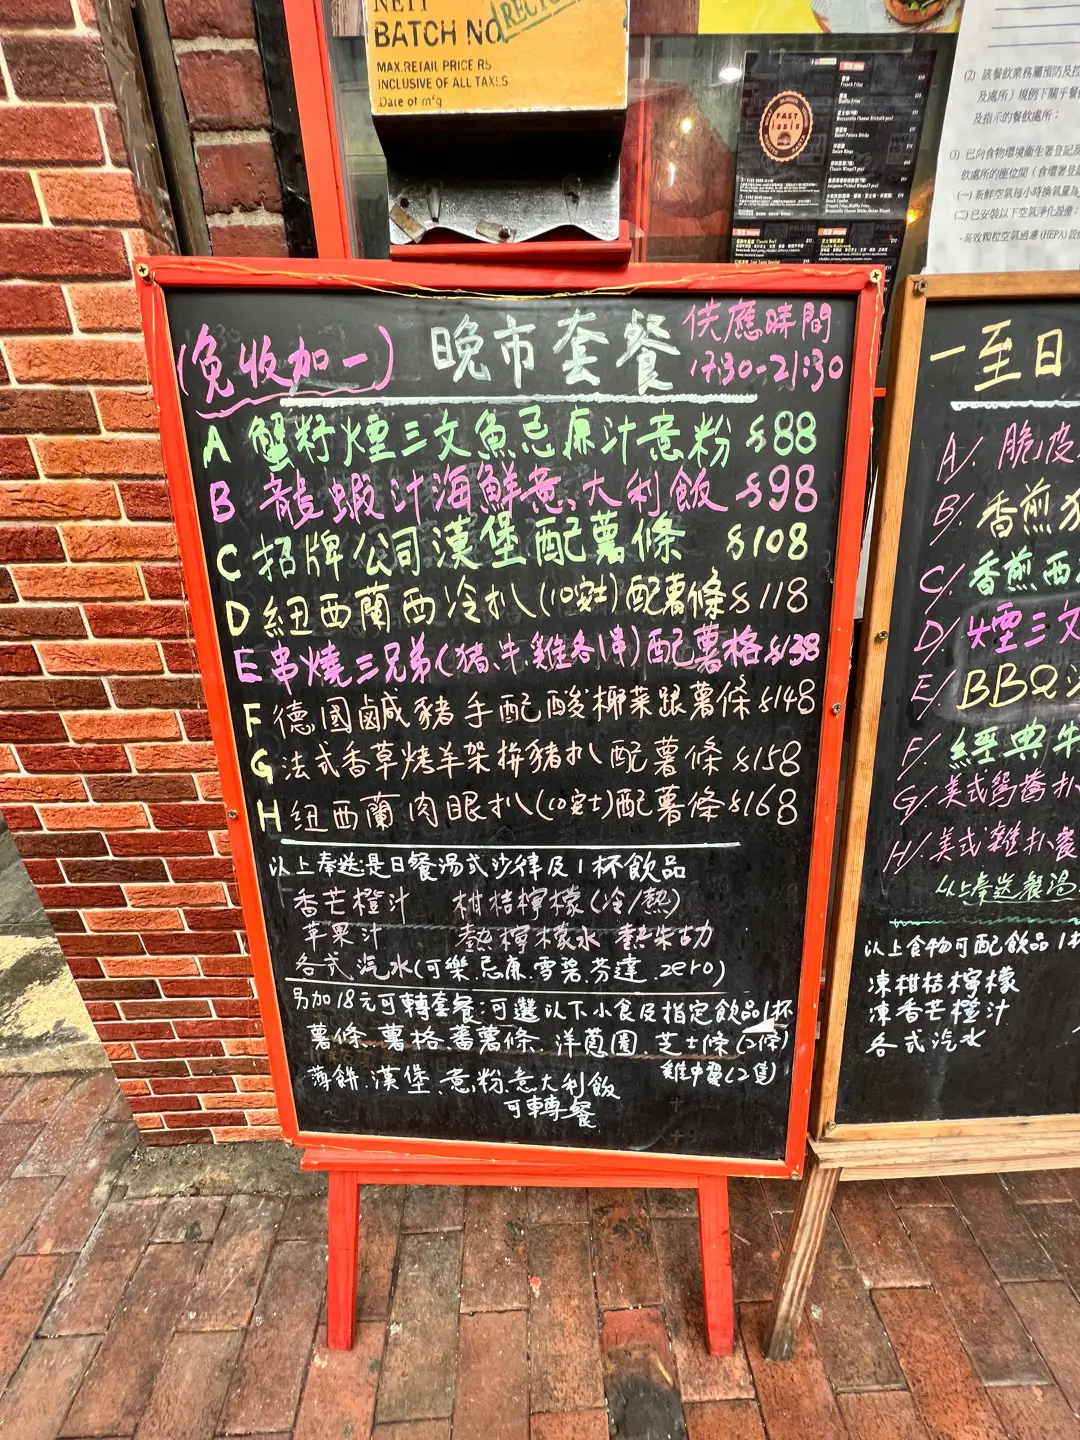 NETT
BATCH NO.
MAX.RETAIL PRICE RS
INCLUSIVE OF ALL TAXES
Date of mfg
FAST
French Fries
Waffle Fries
Sweet Potato Sticks
Onion Rings
(2) 該餐飲業務屬預防及控
及處所）規例下關乎餐
及指示的餐飲處所：
(3) 已向食物環境衞生署登記及
飲處所的座位間（食環署登
(一) 新鮮空氣每小時換氣量為
(二) 已安裝以下空氣淨化設備：
- 高效顆粒空氣過濾 (HEPA) 設
(免收加一)
晚市套餐
供應時間
17:30-21:30
A 蟹籽煙三文魚忌廉汁意粉 $88
B 龍蝦汁海鮮意大利飯 $98
C 招牌公司漢堡配薯條 $108
D 紐西蘭西冷扒(10安士)配薯條 $118
E 串燒三兄弟(豬、牛、雞各1串)配薯格 $138
F 德國鹹豬手配酸椰菜跟薯條 $148
G 法式香草烤羊架拼豬扒配薯條 $158
H 紐西蘭肉眼扒(10安士)配薯條 $168
以上奉送是日餐湯或沙律及1杯飲品
香芒橙汁 柑桔檸檬(冷/熱)
苹果汁 熱檸檬水 熱朱古力
各式汽水(可樂.忌廉.雪碧.芬達.zero)
另加18元可轉套餐:可選以下小食及指定飲品1杯
薯條.薯格.蕃薯條.洋蔥圈.芝士條(2條)
雞中翼(2隻)
薄餅.漢堡.意粉.意大利飯
可轉套餐
一至日
A/. 脆皮
B/. 香煎
C/. 香煎西
D/. 煙三文
E/. BBQ
F/. 經典牛
G/. 美式鴛鴦扒
H/. 美式雞扒餐
以上奉送餐湯
以上食物可配飲品1杯
凍柑桔檸檬
凍香芒橙汁
各式汽水